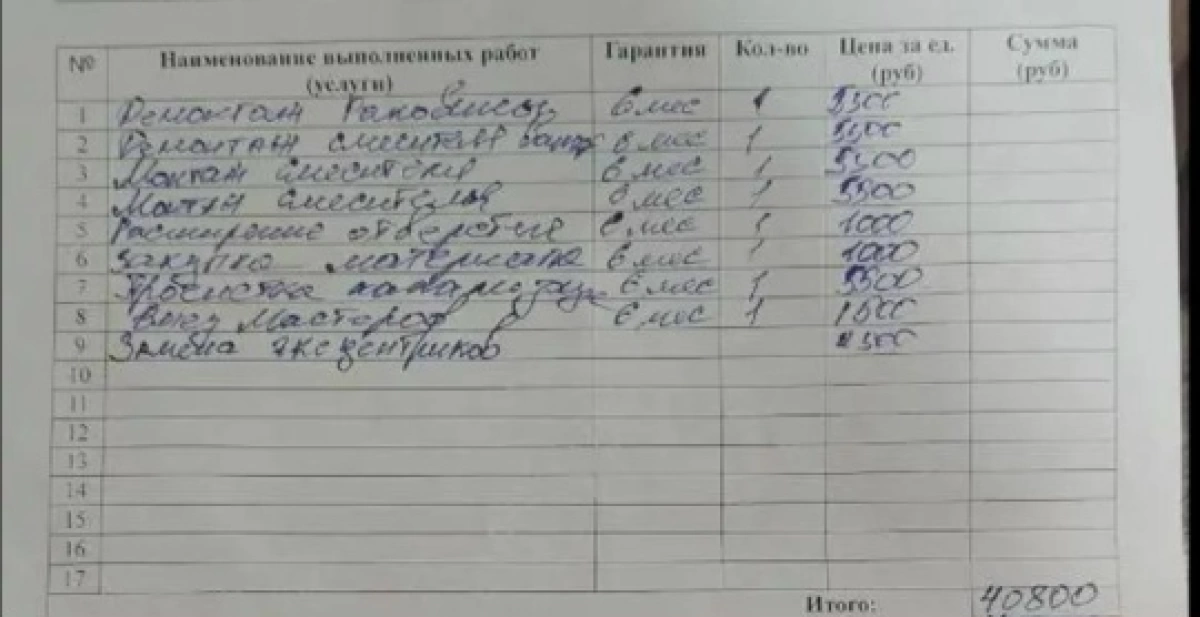 № Наименование выполненных работ (услуги) Гарантия Кол-во Цена за ед. (руб) Сумма (руб)
1 Демонтаж 6 мес 1
2 Демонтаж смесителя 6 мес 1
3 Монтаж смесителя 6 мес 1
4 смесителя 6 мес 1 5500
5 Расширение отверстие 6 мес 1 1000
6 Закупка материала 6 мес 1 1000
7 Прочистка 6 мес 1 5500
8 Выезд Мастеров 6 мес 1 1500
9 Замена эксцентриков
10
11
12
13
14
15
16
17
Итого: 40800